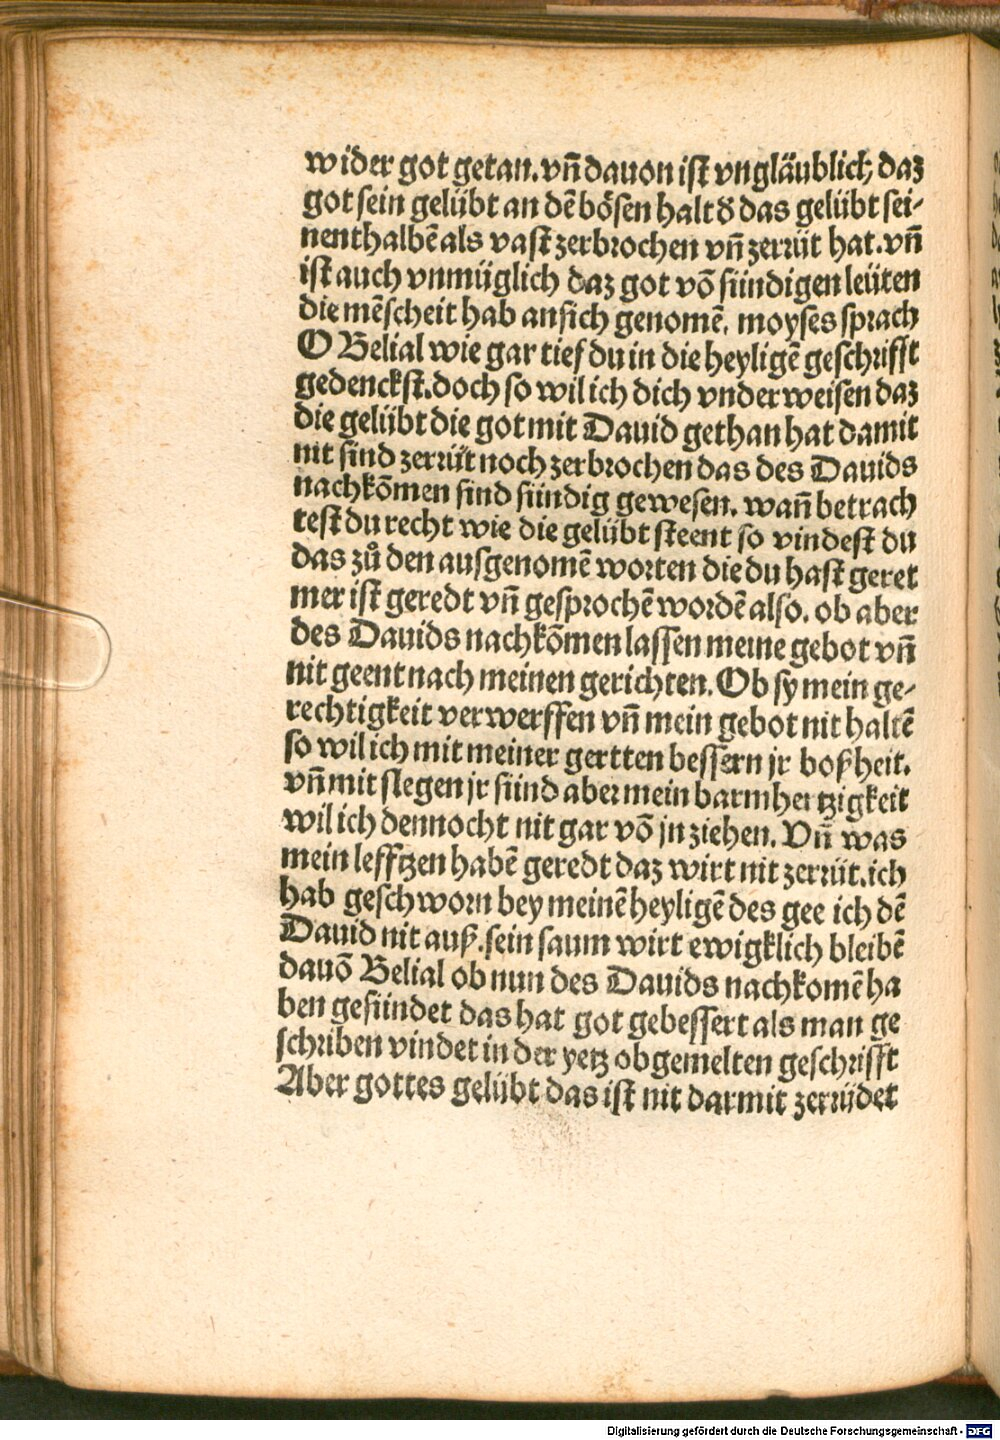 wider got getan. vñ dauon ist vngläublich daz
got sein gelübt an dē bösen halt ď das gelübt sei-
nenthalbē als vast zerbrochen vñ zerrüt hat. vñ
ist auch vnmüglich daz got vō sündigen leüten
die mēscheit hab an sich genomē. moyses sprach
O Belial wie gar tief du in die heyligē geschrifft
gedenckst. doch so wil ich dich vnderweisen daz
die gelübt die got mit Dauid gethan hat damit
nit sind zerrüt noch zerbrochen das des Dauids
nachkōmen sind sündig gewesen. wañ betrach
test du recht wie die gelübt steent so vindest du
das zů den ausgenomē worten die du hast geret
mer ist geredt vñ gesprochē wordē also. ob aber
des Dauids nachkōmen lassen meine gebot vñ
nit geent nach meinen gerichten. Ob sy mein ge-
rechtigkeit verwerffen vñ mein gebot nit haltē
so wil ich mit meiner gertten bessern jr boßheit.
vñ mit slegen jr sünd aber mein barmhertzigkeit
wil ich dennocht nit gar vō jn ziehen. Vñ was
mein lefftzen habē geredt daz wirt nit zerrüt. ich
hab geschworn bey meinē heyligē des gee ich dē
Dauid nit auß. sein saum wirt ewigklich bleibē
dauō Belial ob nun des Dauids nachkomē ha
ben gesündet das hat got gebessert als man ge
schriben vindet in der yetz obgemelten geschrifft
Aber gottes gelübt das ist nit darmit zerrüdet
Digitalisierung gefördert durch die Deutsche Forschungsgemeinschaft - DFG